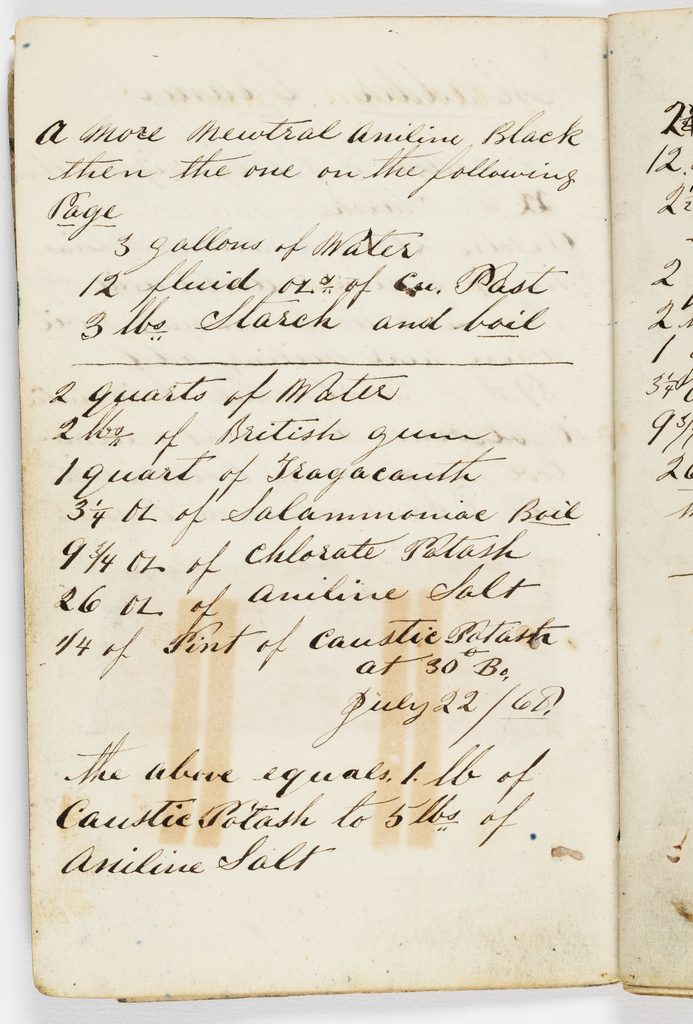 a More Newtral Aniline Black
then the one on the following
Page
3 gallons of Water
12 fluid ozs of Cu. Past
3 lbs Starch and boil
2 quarts of Water
2 lbs of British gum
1 quart of Tragacanth
3 1/4 oz of Salammoniac Boil
9 3/4 oz of Chlorate Potash
26 oz of Aniline Salt
1/4 of Pint of Caustic Potash
at 30° B.
July 22 / 68.
the above equals. 1. lb of
Caustic Potash to 5 lbs of
Aniline Salt
2
12.
2 1/2
2
2
1
3 1/4
9 3/
26